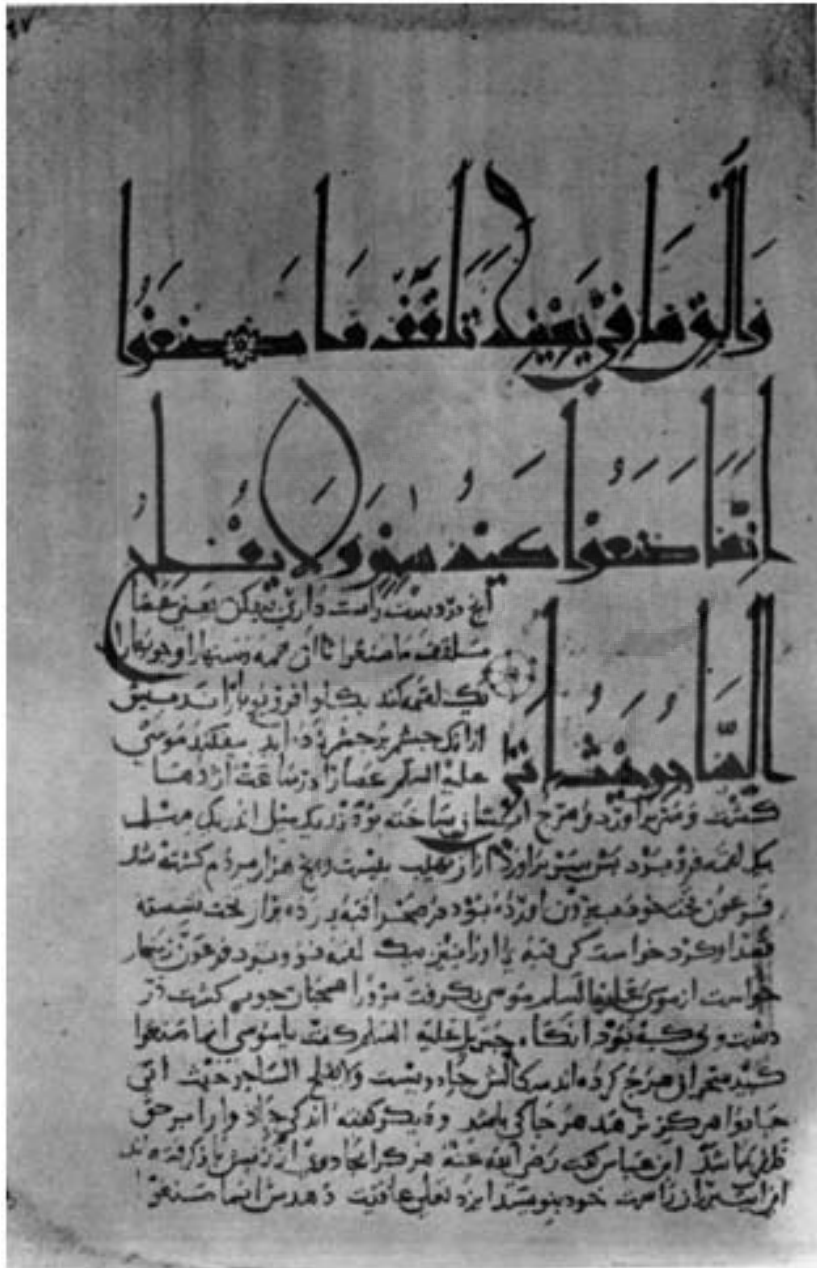 وَأَلْقِ مَا فِي يَمِينِكَ تَلْقَفْ مَا صَنَعُوا
إِنَّمَا صَنَعُوا كَيْدُ سٰحِرٍ وَلَا يُفْلِحُ
السَّاحِرُ حَيْثُ أَتَى
آنج در دست راست داری بیفکن یعنی عصا
تلقف ما صنعوا تا آن همه رسنها و چوبها را
یک لقمه کند بگلو فرو برد
از آنک چشم بر چشم زده اند بیفکند موسی
علیه السلم عصا را در ساعت اژدها
گشت و سر برآورد و هرج ایشان ساخته بودند در یک میل اندر یک میل
بیک لقمه فرو برد بس سر برآورد بیست و پنج هزار مردم کشته شد
فرعون تخت خود بیرون آورده بود در صحرا قبه زده بران تخت نشسته
قصد او کرد خواست کی قبه با او را نیز بیک لقمه فرو برد فرعون زنهار
خواست از موسی علیه السلم موسی بگرفت مر ورا همچنان چوب گشت در
دست وی که بود آنگاه جبریل علیه السلم گفت یا موسی انما صنعوا
کید سحر آن هرج کرده اند سکالش جادویست ولا یفلح الساحر حیث اتی
جادوا هرگز نرهد هر جا کی باشد و دیگر گفته اند کی جادوا را بر حق
ظفر نباشد ابن عباس گفت رضی الله عنه هر کرا بجادوی از زنش باز گرفته اند
این آیت بران راست خود بنویسد ایزد تعلی عافیت دهدش انما صنعوا